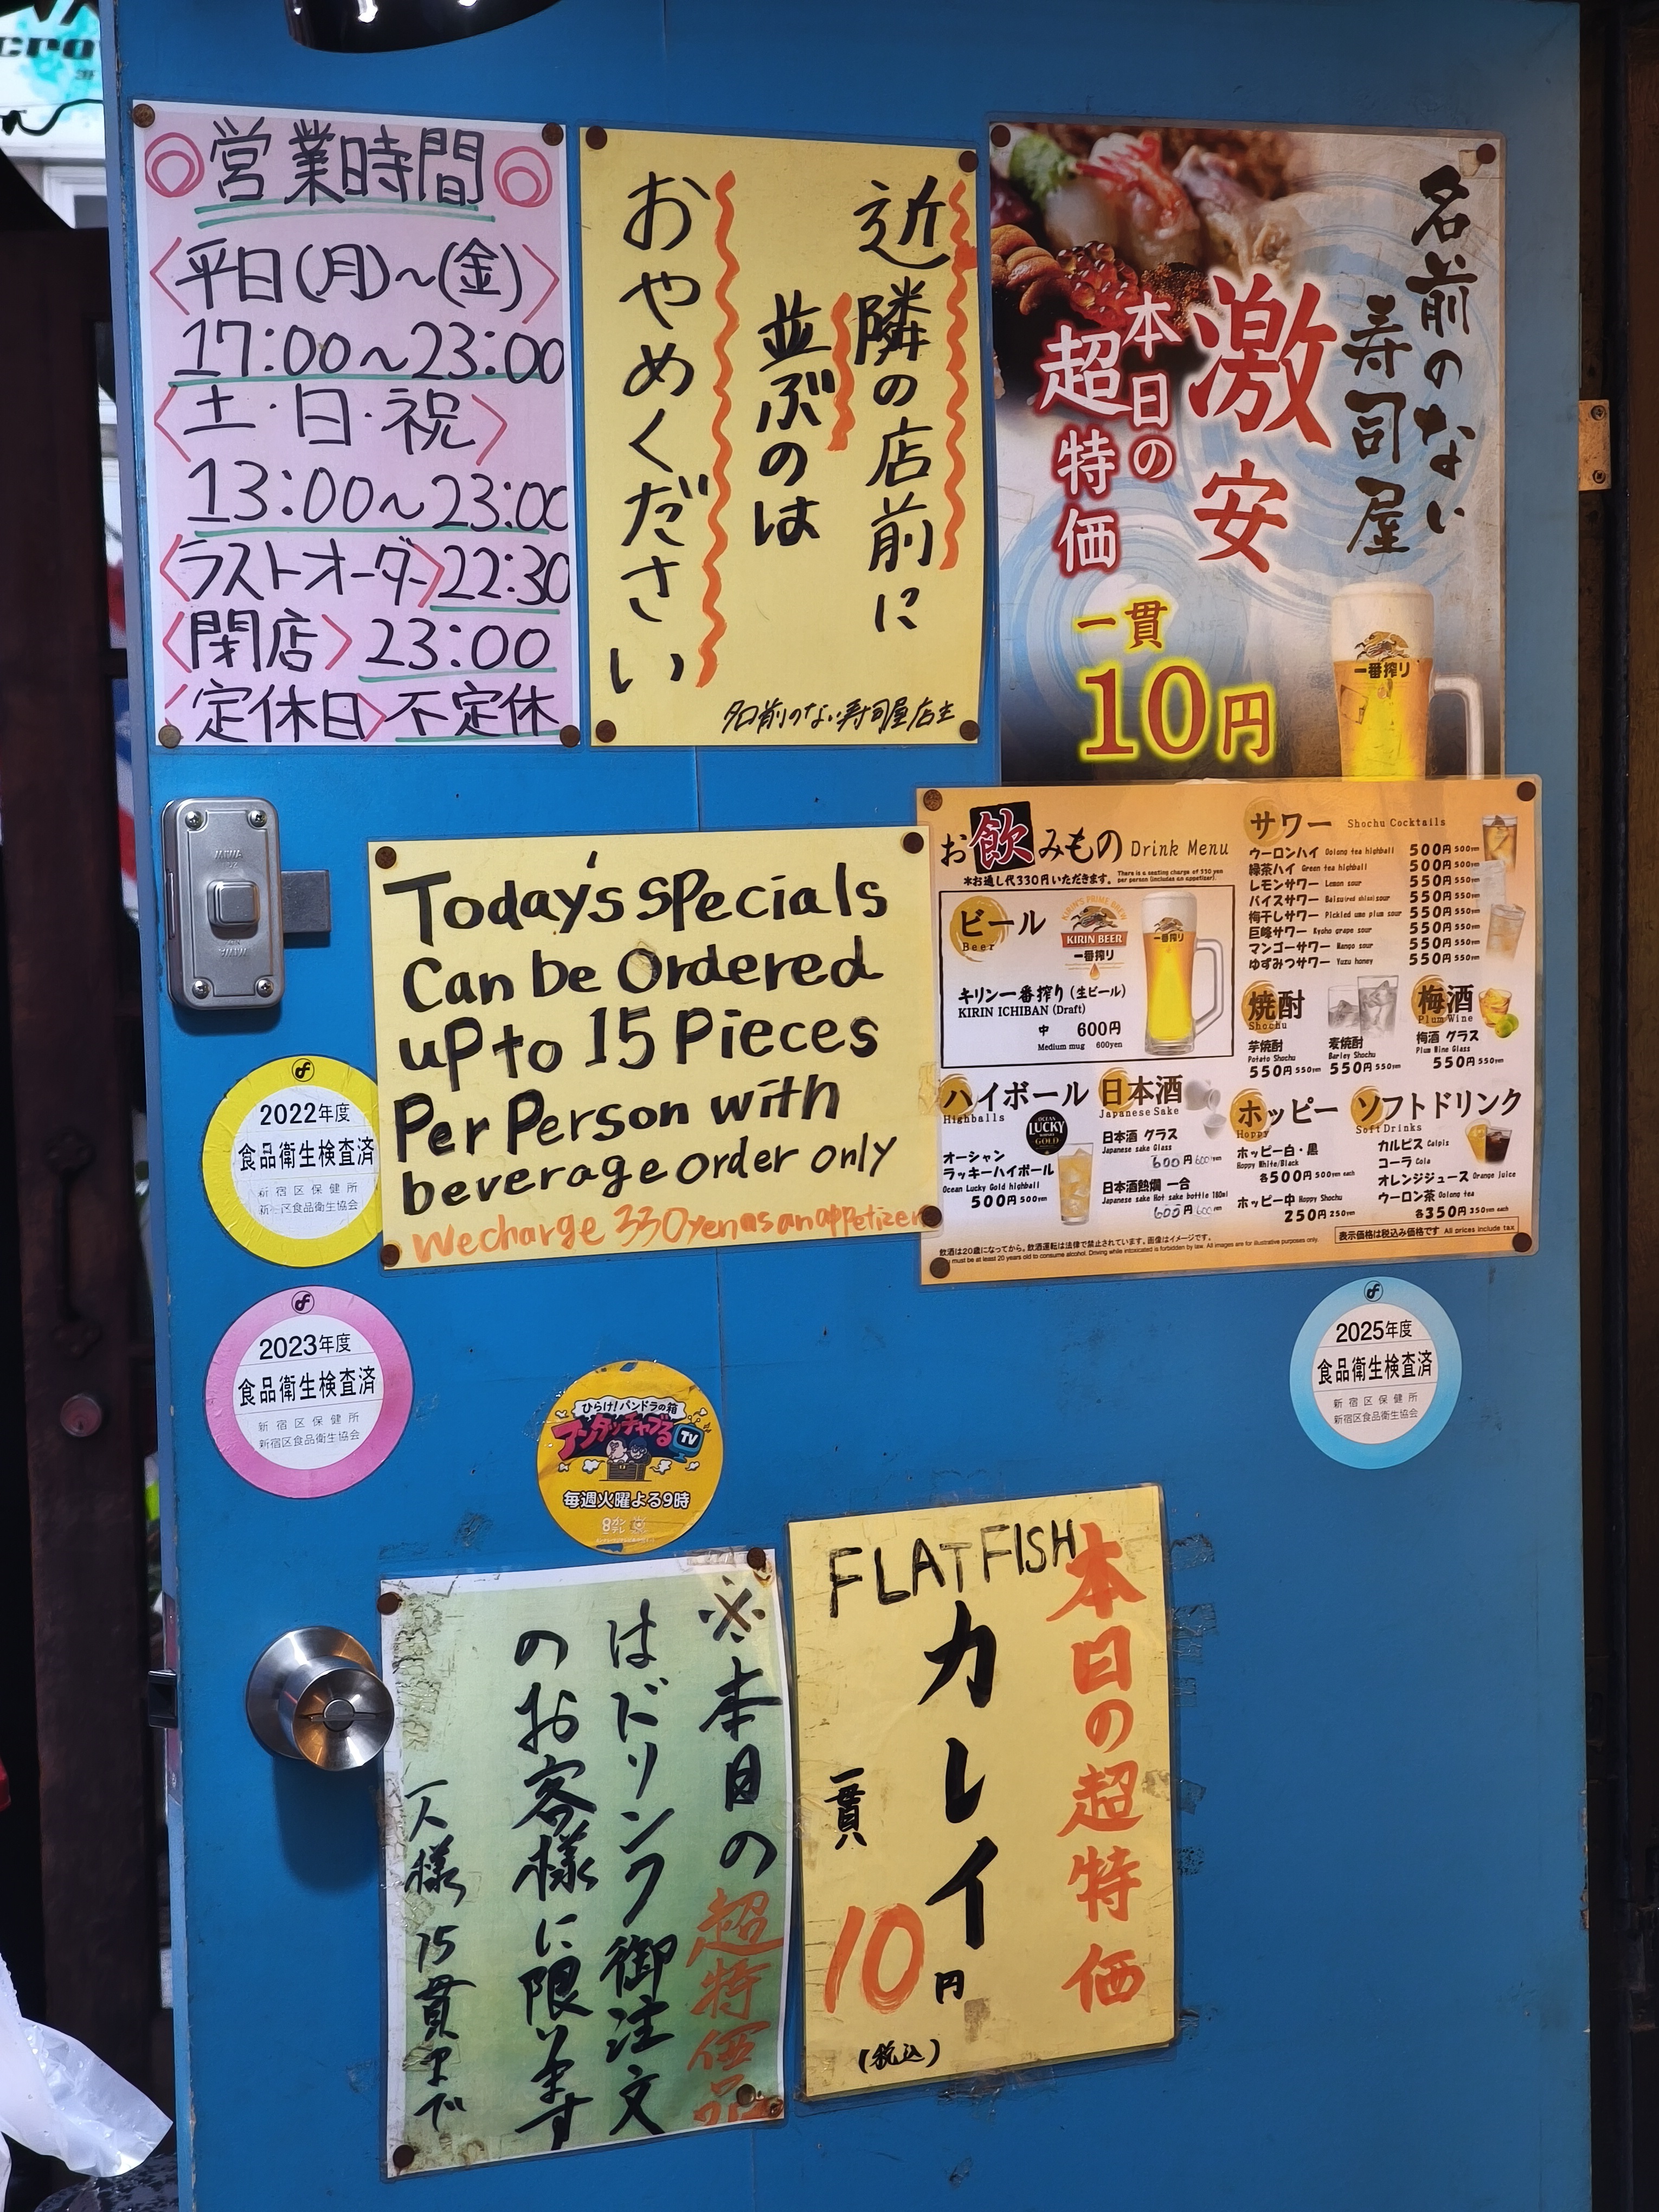 cro
3F
営業時間
〈平日(月)～(金)〉
17:00～23:00
〈土・日・祝〉
13:00～23:00
〈ラストオーダー〉22:30
〈閉店〉23:00
〈定休日〉不定休
近隣の店前に
並ぶのは
おやめください
名前のない寿司屋店主
名前のない
寿司屋
激安
本日の
超特価
一貫
10円
一番搾り
Today's specials
Can be Ordered
up to 15 Pieces
Per Person with
beverage order only
We charge 330yen as an appetizer
お飲みもの Drink Menu
*お通し代330円いただきます。
There is a seating charge of 330 yen
per person (includes an appetizer).
ビール
Beer
KIRIN'S PRIME BREW
KIRIN BEER
一番搾り
一番搾り
キリン一番搾り(生ビール)
KIRIN ICHIBAN (Draft)
中 600円
Medium mug 600yen
サワー Shochu Cocktails
ウーロンハイ Oolong tea highball 500円 500yen
緑茶ハイ Green tea highball 500円 500yen
レモンサワー Lemon sour 550円 550yen
バイスサワー Baisu(red shiso) sour 550円 550yen
梅干しサワー Pickled ume plum sour 550円 550yen
巨峰サワー Kyoho grape sour 550円 550yen
マンゴーサワー Mango sour 550円 550yen
ゆずみつサワー Yuzu honey 550円 550yen
焼酎
Shochu
芋焼酎
Potato Shochu
550円 550yen
麦焼酎
Barley Shochu
550円 550yen
梅酒
Plum Wine
梅酒 グラス
Plum Wine Glass
550円 550yen
ハイボール
Highballs
OCEAN
LUCKY
GOLD
オーシャン
ラッキーハイボール
Ocean Lucky Gold highball
500円 500yen
日本酒
Japanese Sake
日本酒 グラス
Japanese sake Glass
600円 600yen
日本酒熱燗 一合
Japanese sake Hot sake bottle 180ml
600円 600yen
ホッピー
Hoppy
ホッピー白・黒
Hoppy White/Black
各500円 500yen each
ホッピー中 Hoppy Shochu
250円 250yen
ソフトドリンク
Soft Drinks
カルピス Calpis
コーラ Cola
オレンジジュース Orange juice
ウーロン茶 Oolong tea
各350円 350yen each
飲酒は20歳になってから。飲酒運転は法律で禁止されています。画像はイメージです。
must be at least 20 years old to consume alcohol. Driving while intoxicated is forbidden by law. All images are for illustrative purposes only.
表示価格は税込み価格です All prices include tax
MIWA
MIWA
2022年度
食品衛生検査済
新宿区保健所
新宿区食品衛生協会
2023年度
食品衛生検査済
新宿区保健所
新宿区食品衛生協会
2025年度
食品衛生検査済
新宿区保健所
新宿区食品衛生協会
ひらけ!パンドラの箱
アンタッチャブるTV
毎週火曜よる9時
8カンテレ
※本日の超特価品
はドリンク御注文
のお客様に限ります
一人様15貫まで
FLATFISH
本日の超特価
カレイ
一貫
10円
(税込)